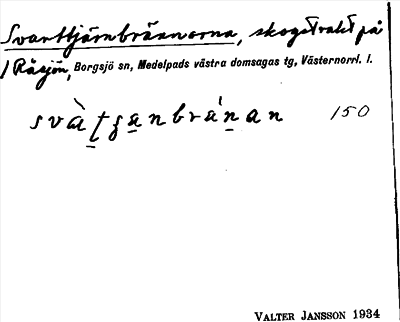 Svarttjärnbrännorna, skogstrakt på
/ Råsjön, Borgsjö sn, Medelpads västra domsagas tg, Västernorrl. l.
svàtʃanbránan 150
VALTER JANSSON 1934